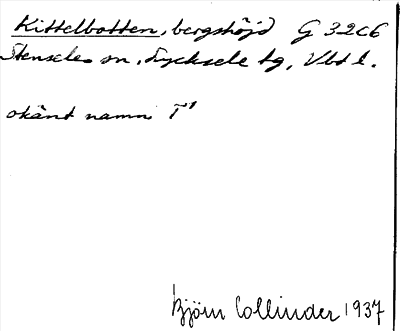 Kittelbotten, bergshöjd G 32c6
Stensele sn, Lycksele tg, Vbt l.
okänt namn T¹
Björn Collinder 1937